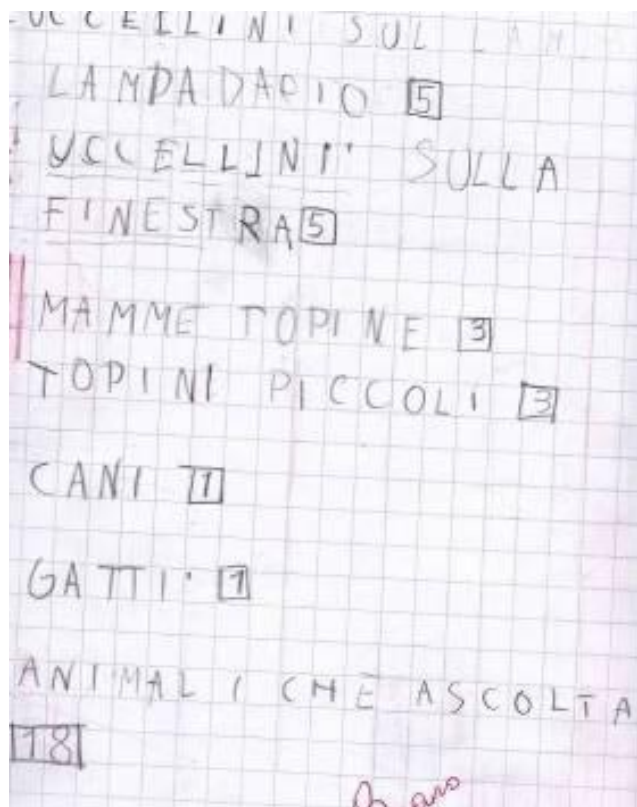 UCCELLINI SUL LAM
LAMPADARIO 5
UCCELLINI SULLA
FINESTRA 5
MAMME TOPINE 3
TOPINI PICCOLI 3
CANI 1
GATTI 1
ANIMALI CHE ASCOLTA
18